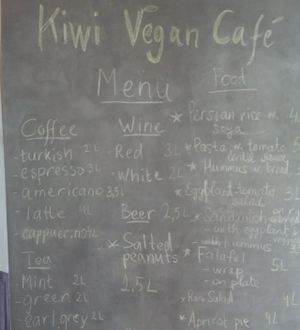 Kiwi Vegan Café
Menu
Coffee
- turkish 2L
- espresso 3L
- americano 3.5L
- latte 4L
- cappuccino 4L
Tea
Mint 2L
- green 2L
- earl grey 2L
Wine
- Red 3L
- White 2L
Beer 2,5L
* Salted
peanuts
2,5L
Food
* Persian rice w. 4
soya
* Pasta w. tomato 5
lentil sauce
* Hummus w. bread
* Eggplant-tomato 3L
salad
* Sandwich
- with eggplant &
- with hummus
* Falafel 5L
- wrap
- on plate
* Raw Salad 4L
* Apricot pie 4L